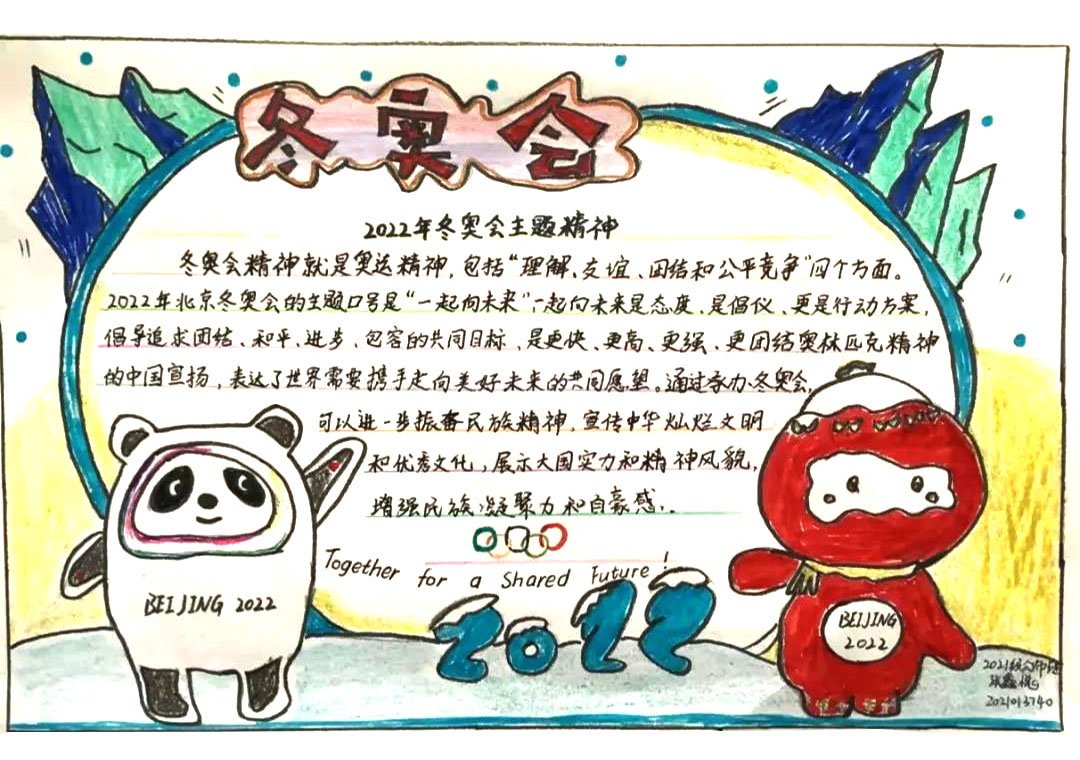 冬奥会
2022年冬奥会主题精神
冬奥会精神就是奥运精神，包括“理解、友谊、团结和公平竞争”四个方面。
2022年北京冬奥会的主题口号是“一起向未来”，一起向未来是态度、是倡仪、更是行动方案，
倡导追求团结、和平、进步、包容的共同目标，是更快、更高、更强、更团结奥林匹克精神
的中国宣扬，表达了世界需要携手走向美好未来的共同愿望。通过承办冬奥会，
可以进一步振奋民族精神，宣传中华灿烂文明
和优秀文化，展示大国实力和精神风貌，
增强民族凝聚力和自豪感.
Together for a Shared Future!
2022
BEIJING 2022
BEIJING
2022
2021级